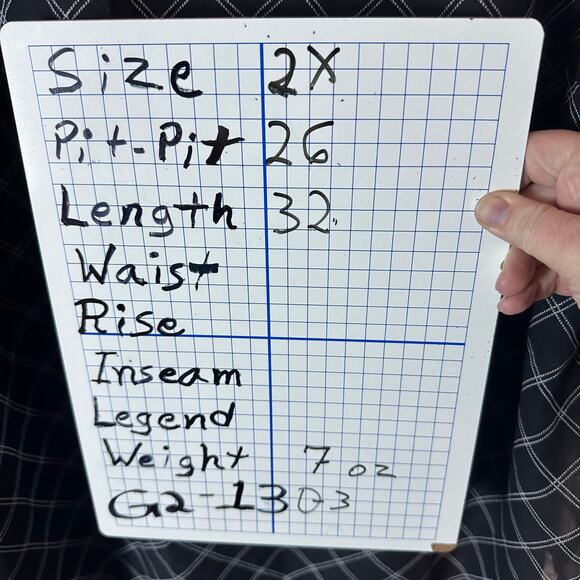 Size 2X
Pit-Pit 26
Length 32
Waist
Rise
Inseam
Legend
Weight 7 oz
G2-1303